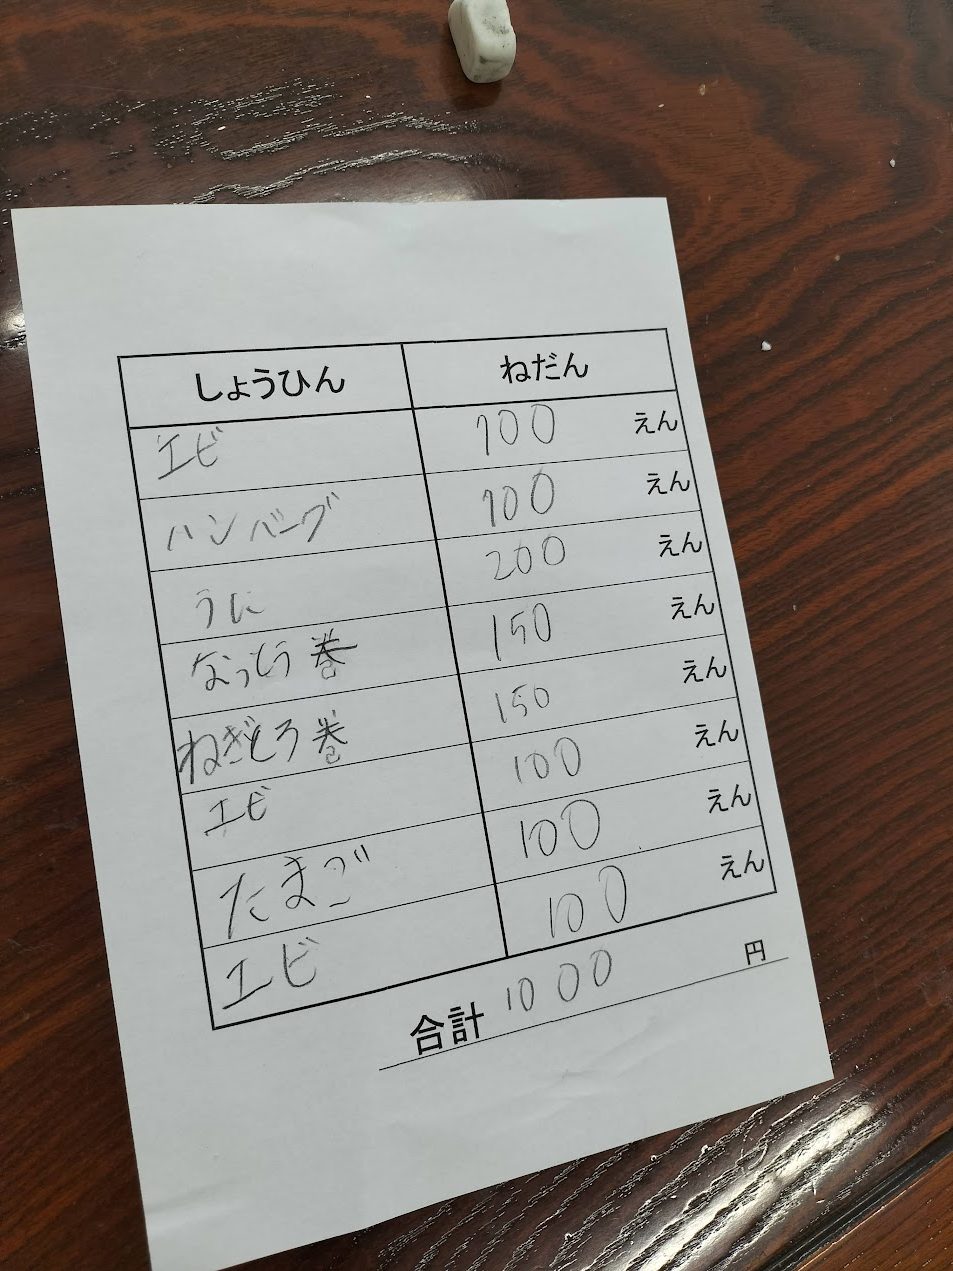 しょうひん ねだん
エビ 100 えん
ハンバーグ 100 えん
うに 200 えん
なっとう巻 150 えん
ねぎとろ巻 150 えん
エビ 100 えん
たまご 100 えん
エビ 100 えん
合計 1000 円